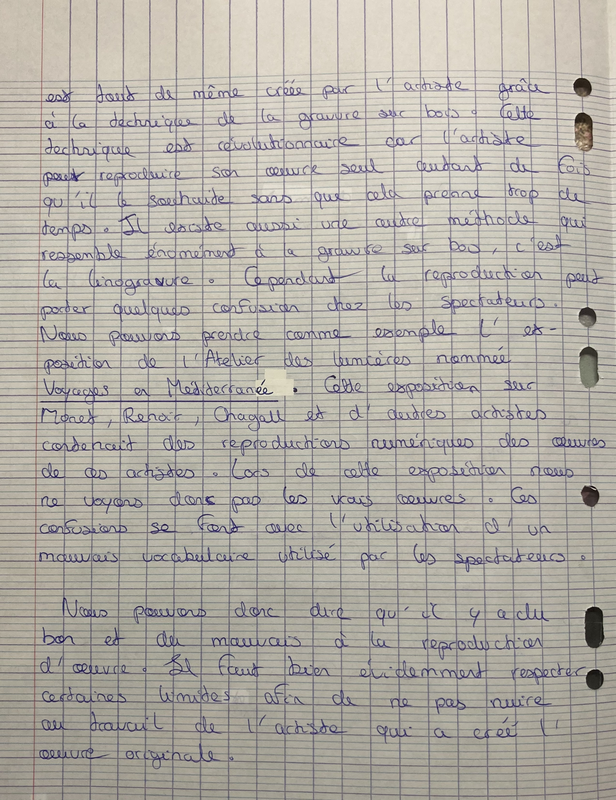 est tout de même créée par l'artiste grâce
à la technique de la gravure sur bois. Cette
technique est révolutionnaire car l'artiste
peut reproduire son œuvre seul autant de fois
qu'il le souhaite sans que cela prenne trop de
temps. Il existe aussi une autre méthode qui
ressemble énormément à la gravure sur bois, c'est
la linogravure. Cependant la reproduction peut
porter quelques confusion chez les spectateurs.
Nous pouvons prendre comme exemple l'ex-
position de l'Atelier des lumières nommée
Voyages en Méditerranée. Cette exposition sur
Monet, Renoir, Chagall et d'autres artistes
contenait des reproductions numériques des œuvres
de ces artistes. Lors de cette exposition nous
ne voyons donc pas les vrais œuvres. Ces
confusions se font avec l'utilisation d'un
mauvais vocabulaire utilisé par les spectateurs.
Nous pouvons donc dire qu'il y a du
bon et du mauvais à la reproduction
d'œuvre. Il faut bien évidemment respecter
certaines limites afin de ne pas nuire
au travail de l'artiste qui a créé l'
œuvre originale.